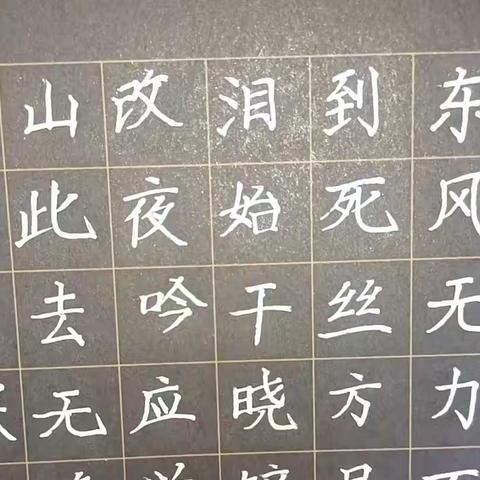 东风无力
到死丝方
泪始干晓
改夜吟应
山此去无